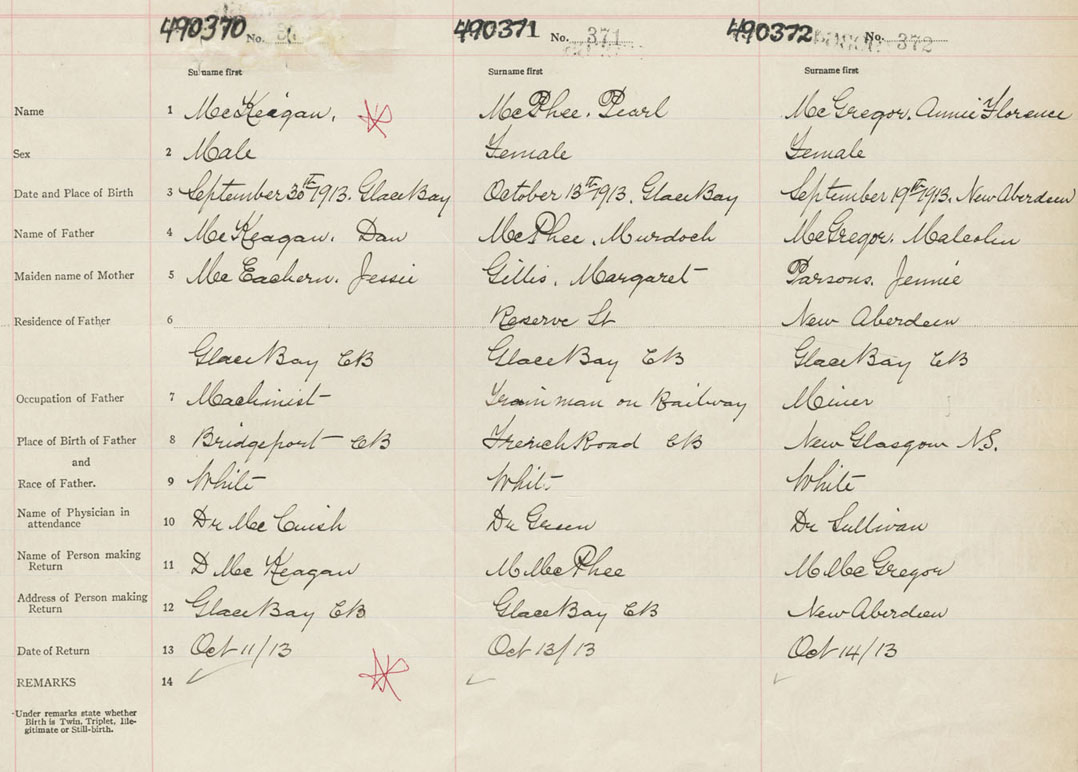 490370 No. 490371 No. 371 490372 No. 372
Surname first Surname first Surname first
Name 1 McKeagan. McPhee. Pearl McGregor. Annie Florence
Sex 2 Male Female Female
Date and Place of Birth 3 September 30th 1913. Glace Bay October 13th 1913. Glace Bay September 19th 1913. New Aberdeen
Name of Father 4 McKeagan. Dan McPhee. Murdoch McGregor. Malcolm
Maiden name of Mother 5 McEachern. Jessie Gillis. Margaret Parsons. Jennie
Residence of Father 6 Reserve St New Aberdeen
Glace Bay CB Glace Bay CB Glace Bay CB
Occupation of Father 7 Machinist Trainman on Railway Miner
Place of Birth of Father 8 Bridgeport CB French Road CB New Glasgow N.S.
and
Race of Father. 9 White White White
Name of Physician in
attendance 10 Dr McCuish Dr Green Dr Sullivan
Name of Person making
Return 11 D McKeagan M McPhee M McGregor
Address of Person making
Return 12 Glace Bay CB Glace Bay CB New Aberdeen
Date of Return 13 Oct 11/13 Oct 13/13 Oct 14/13
REMARKS 14
Under remarks state whether
Birth is Twin, Triplet, Ille-
gitimate or Still-birth.